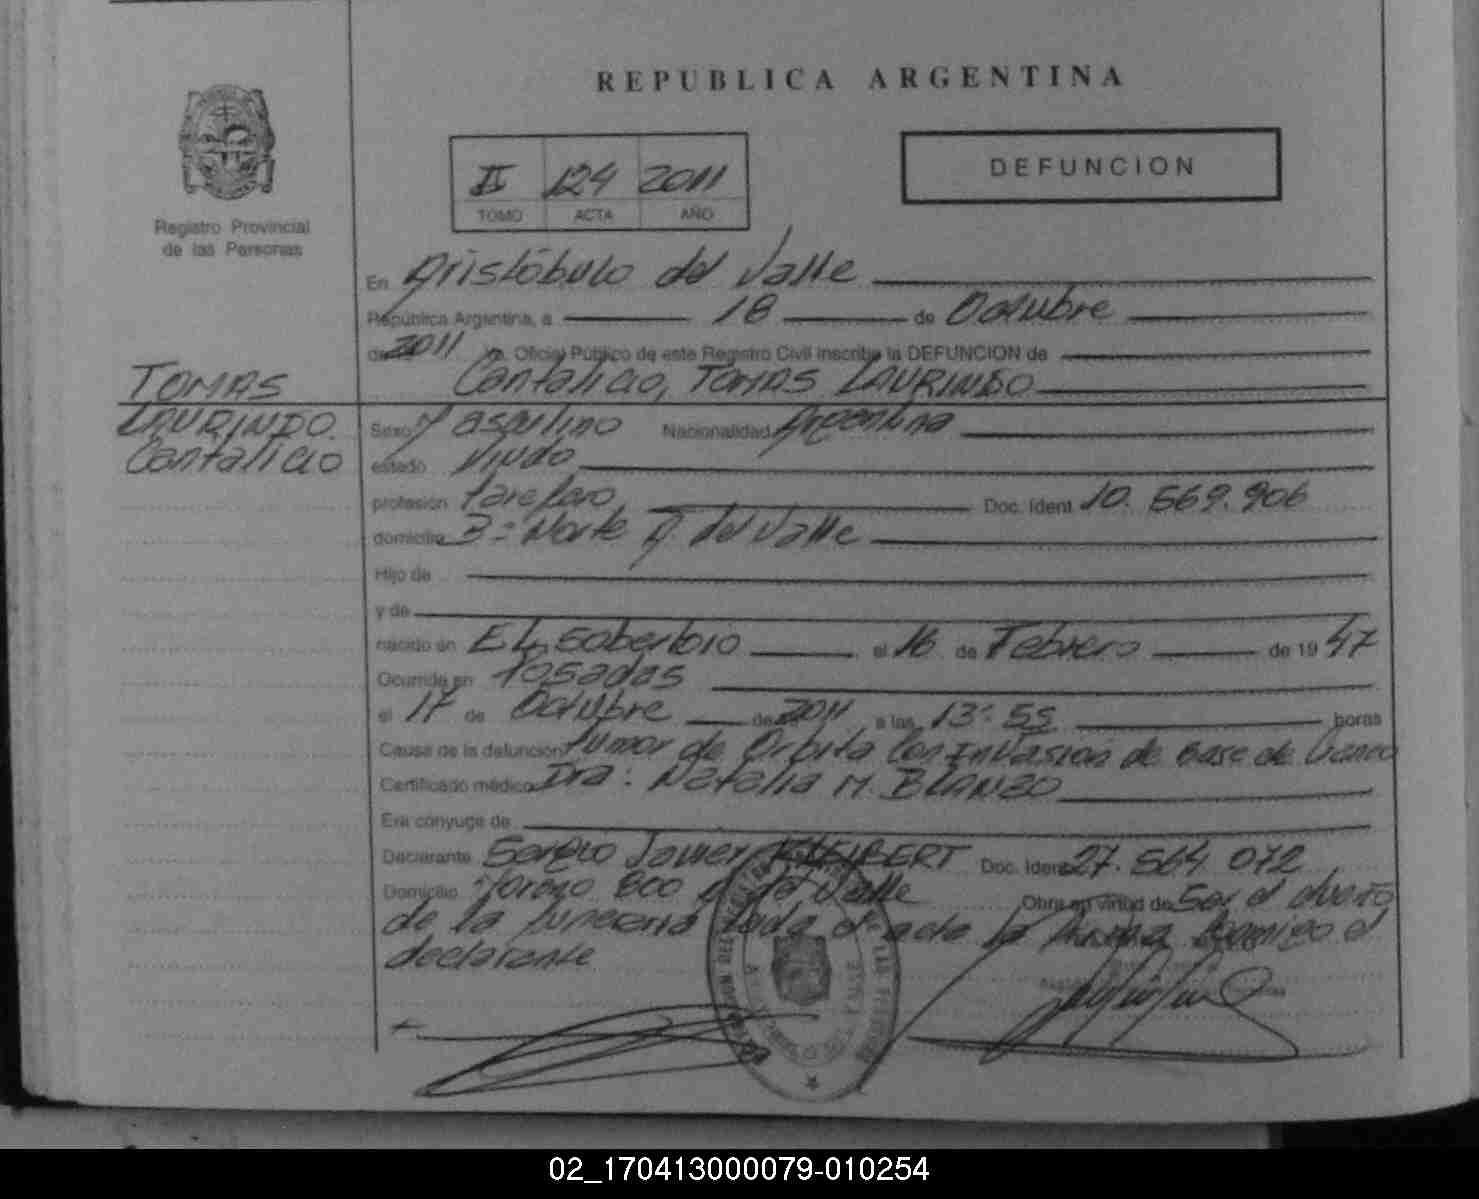 REPUBLICA ARGENTINA
II 124 2011
TOMO ACTA AÑO
DEFUNCION
Registro Provincial
de las Personas
En Aristóbulo del Valle
República Argentina, a 18 de Octubre
de 2011 yo, Oficial Público de este Registro Civil inscribo la DEFUNCION de
Cantalicio, TOMAS LAURINDO
TOMAS
LAURINDO
Cantalicio
Sexo Masculino Nacionalidad Argentina
estado Viudo
profesión Tarefero Doc. Ident 10.569.906
domicilio 3- Norte A. del Valle
Hijo de
y de
nacido en EL Soberbio el 16 de Febrero de 1947
Ocurrida en Posadas
el 17 de Octubre de 2011 a las 13:55 horas
Causa de la defunción Tumor de Orbita Con Invasion de Base de
Certificado médico Dra: Natalia M.
Era cónyuge de
Declarante Sergio Javier KLEIBERT Doc. Ident 27.564.072
Domicilio 800 A. del Valle Obra en virtud de Ser el dueño
de la funeraria Leida el acta la firma Conmigo el
declarante
02_170413000079-010254